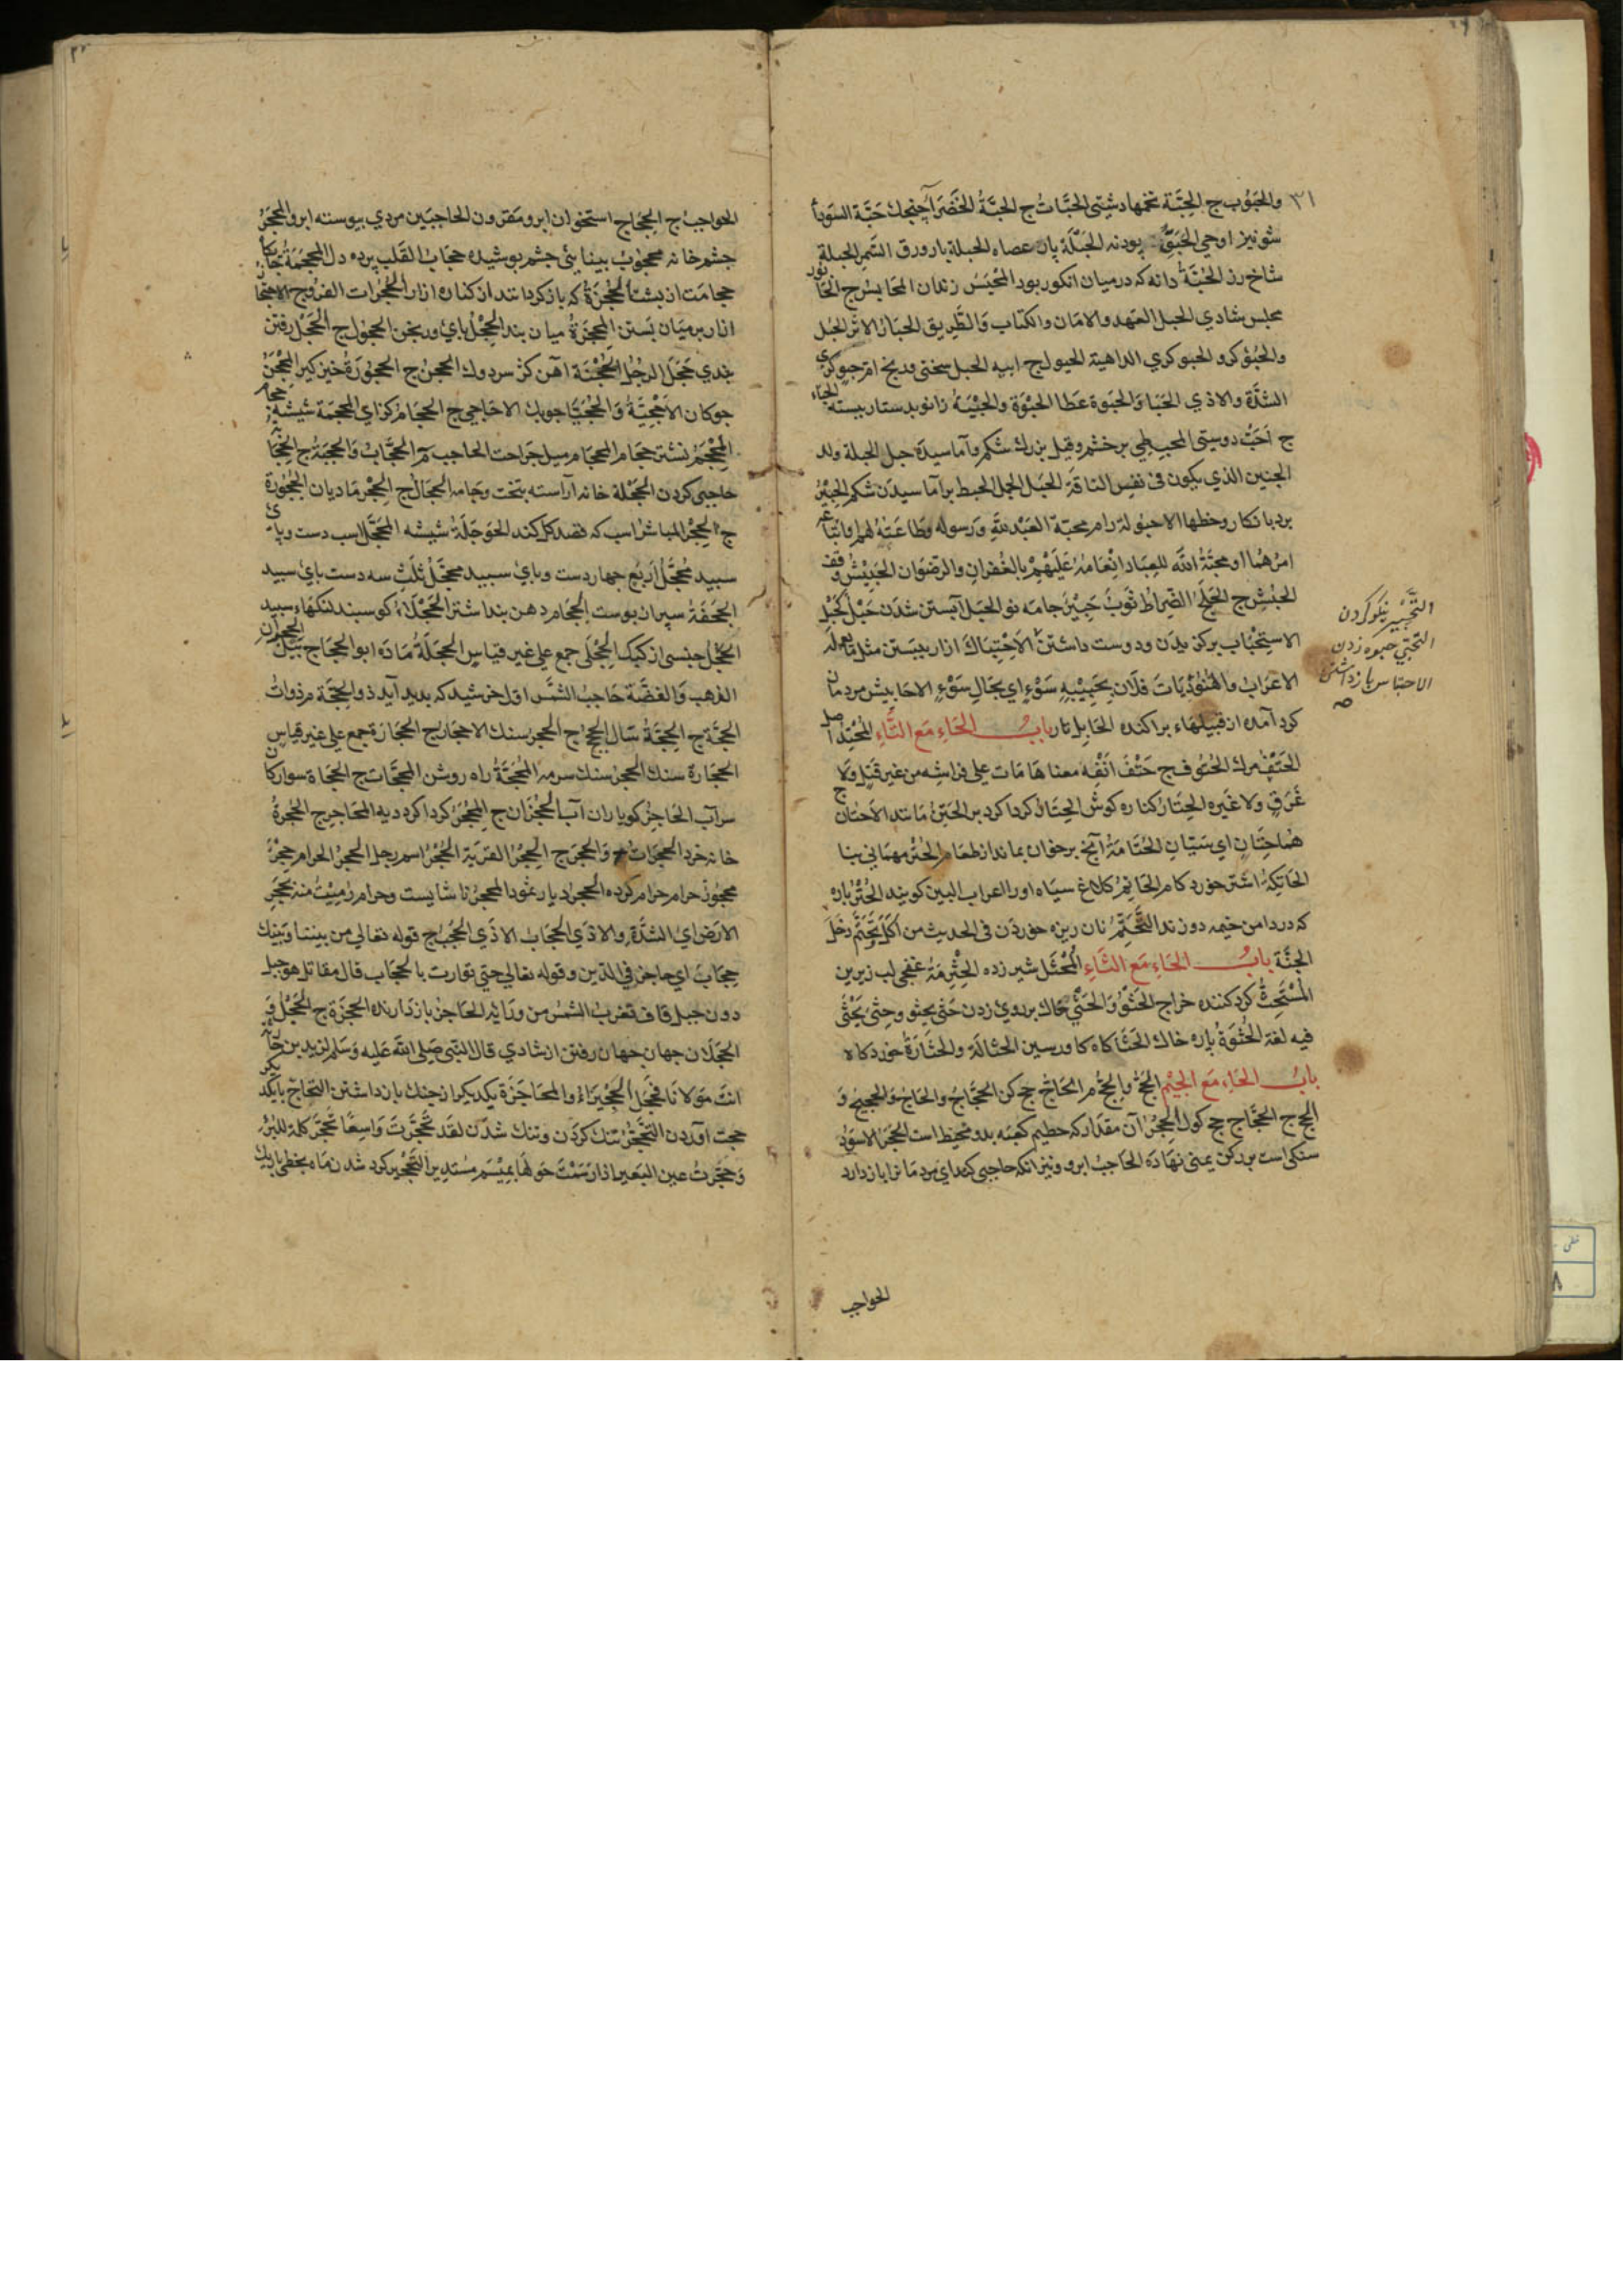 ۳۱ والحبوب ج الحِبَّة تخمها دشتى الحبّات ج الحبّة الخضرا جنجك حبّة السودا
شونيز اوحى الحبق پودنه الحبلة پار عصاه الحبلة بار ورق السمر الحبلة
شاخ رز الحبّة دانه كه درميان انكور بود المحبس زندان المحابس ج
مجلس شادي الحبل العهد والامان والكتاب والطريق الحبار الاثر الحبل
والحبوكر و الحبوكري الداهية الحبول ج
الشدّة والاذي الحبا والحبوة عطا الحبوة والحبية زانو بدستار بسته
ج احبّ دوستى المحبنطي برخشم وقيل بزرك شكم وآماسيده حبل الحبلة ولد
الجنين الذي يكون فى نفس الناقة الحبل الحمل الحبط برآماسيدن شكم
محبة العبد لله ورسوله وطاعته لهما واتباع
امرهما او محبّة الله للعباد انعامه عليهم بالغفران والرضوان الحبيش
الحبش ج الضراط ثوب حبير جامه نو الحبل آبستن شدن حبل كحبل
الاستحباب بركزيدن ودوست داشتن الاحتباك ازار ببستن
الاعراب فلان بحيبة سوء اي بحال سوء الاحابيش مردمان
كرد آمده از قبيلهاء براكنده الحابل تار باب الحاء مع التاء المحتد اصل
الحتف مرك الحتوف ج حتف انفه معناها مات على فراشه من غير قتل ولا
غرق ولا غيره الحتار كناره كوش الحتار كرداكرد بر الحتن مانند الاحتان ج
هما حتنان اي سيّان الحتامة آنچ برخوان بماند از طعام الحتر مهمانى بنا
اشتر خورد كام الحاتم كلاغ سياه اورا غراب البين كويند الحتر پاره
كه در دامن خيمه دوزند التحتّم نان ريزه خوردن فى الحديث من اكل وتحتّم دخل
الجنّة باب الحاء مع الثاء المحثل شير زده الحثرمة غنچى لب زيرين
المستحث كرد كننده خراج الحثو والحثي خاك بر روى زدن حثى يحثو وحثى يحثى
فيه لغة الحثوة پاره خاك الحثا كاه كاورسين الحثالة والحثارة خورد كاه
باب الحاء مع الجيم الحج والحج م الحاج حج كن الحجّاج والحاج والحجيج و
الحج ج الحجّاج حج كول الحجر آن مقدار كه حطيم كعبه بدو محيط است الحجر الاسود
سنكى است بر ركن يمنى نهاده الحاجب ابرو ونيز آنكه حاجبى كند اي مردمانرا بازدارد
التحبير نيكو كردن
التحبّي حبوه زدن
الاحتباس بازداشتن
صه
الحواجب
الحواجب ج الحجاج استخوان ابرو مقرون الحاجبين مردي پيوسته ابرو المحجر
چشم خانه محجوب بينايى چشم پوشيده حجاب القلب پرده دل المحجمة جاى
حجامت از پشت الحجزة كه باز كردانند از كناره ازار الحجزات
ازار برميان بستن المحجزة ميان بند الحجل پاي ورنجن الحجول ج الحجل رفتن
بندي حجل الرجل الحجنة آهن كژ سر دوك الحجن ج
جوكان المحجمة شيشه
المحجم نشتر حجام الحاجب م الحجّاب والحجبة ج
حاجبى كردن الحجلة خانه آراسته بتخت وجامه الحجال ج الحجر ماديان الحجورة
ج الحوجلة شيشه المحجّل اسب دست وپاى
سپيد محجّل اربع چهار دست وپاي سپيد محجّل ثلث سه دست پاي سپيد
الحجفة سپر از پوست الحجام دهن بند اشتر الحجلاء كوسبند لنكهاء سپيد
الحجل جنسى از كبك الحجلى جمع على غير قياس الحجلة ماده ابو الحجاج پيل الحجران
الذهب والفضّة حاجب الشمس اول خرشيد كه پديد آيد ذو الحجّة م ذوات
الحجّة ج الحجّة سال الحجج ج الحجر سنك الاحجار ج الحجارة جمع على غير قياس
الحجارة سنك الحجر سنك سرمه المحجّة راه روشن المحجّات ج الحجاة سواركان
سر آب الحاجز كوى باران آب الحجزان ج المحجر كرداكرد ديه المحاجر ج الحجرة
خانه خرد الحجرات والحجر ج الحجر القربة الحجر اسم رجل الحجر الحرام
محجور حرام حرام كرده الحجر ديار ثمود الحجر ناشايست وحرام رميت منه بحجر
الارض اي الشدّة والاذي الحجاب الاذي الحجب ج قوله تعالى من بيننا وبينك
حجاب اي حاجز فى الدين وقوله تعالى حتى توارت بالحجاب قال مقاتل هو جبل
دون جبل قاف تغرب الشمس من ورائه الحاجز بازدارنده الحجزة ج الحجل و
الحجلان جهان جهان رفتن از شادي قال النبى صلى الله عليه وسلم لزيد بن حارثة
انت مولانا فحجل الحجيزاء والمحاجزة يكديكر از جنك بازداشتن التحاج بايكديكر
حجت آوردن التحجر تنك كردن وتنك شدن لقد تحجّرت واسعا
وحجّرت عين البعير اذا وسمت حولها بميسم مستدير التحجير كرد شدن ماه بخطى باريك